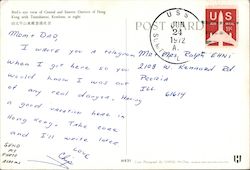 Bird's eye view of Central and Eastern Districts of Hong
Kong with Tsimshatsui, Kowloon, in sight
POST CARD
U.S.S.
JUN
24
1972
A.
Mom & Dad
I wave you a telegram
when I got here so you
would know I was out
of any real danger. Having
a good vacation here in
Hong Kong. Take care
and I'll write later
Love
SEND
MY
PHOTO
Mr + Mrs. Ralph
2108 W. Kennard Rd
Peoria
Ill
61614